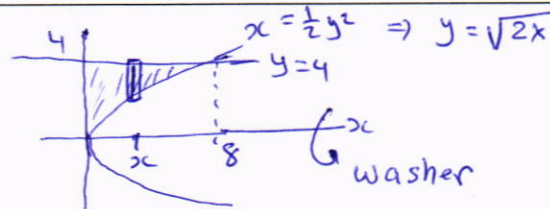 x = ½y² ⇒ y = √2x
4
y = 4
x
8
x
washer